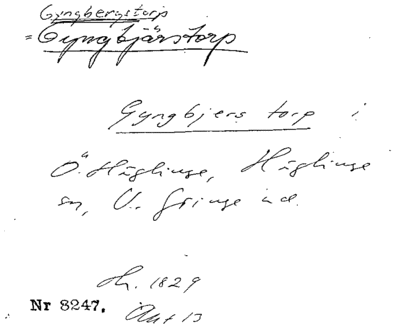 Gyngbergstorp
= Gyngbjärstorp
Gyngbjers torp i
Ö. Häglinge, Häglinge
sn, V. Göinge hd.
Lh. 1829
Nr 8247. Akt 13